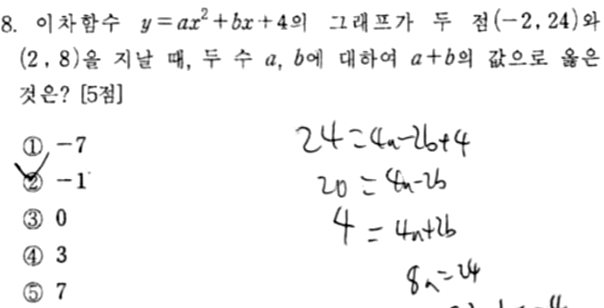 8. 이차함수 y=ax²+bx+4의 그래프가 두 점(-2, 24)와
(2, 8)을 지날 때, 두 수 a, b에 대하여 a+b의 값으로 옳은
것은? [5점]
① -7
② -1
③ 0
④ 3
⑤ 7
24=4a-2b+4
20=4a-2b
4=4a+2b
8a=24